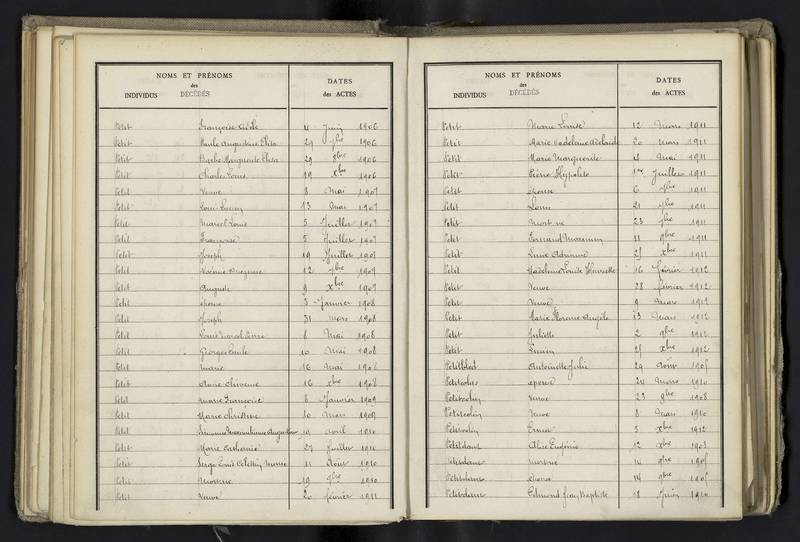 NOMS ET PRÉNOMS
des
INDIVIDUS DÉCÉDÉS
DATES
des ACTES
Petit Françoise 4 Juin 1906
Petit Paule Augustine Elisa 29 1906
Petit Barbe Marguerite Elisa 29 8bre 1906
Petit Charles Louis 19 Xbre 1906
Petit Veuve 8 Mai 1907
Petit Louis 13 Mai 1907
Petit Marcel Louis 5 Juillet 1907
Petit Françoise 5 Juillet 1907
Petit Joseph 19 Juillet 1907
Petit 12 1907
Petit Auguste 9 Xbre 1907
Petit épouse 3 Janvier 1908
Petit Joseph 31 mars 1908
Petit Louis Marcel Pierre 8 Mai 1908
Petit Georges Emile 10 Mai 1908
Petit Marie 16 Mai 1908
Petit Anne 16 Xbre 1908
Petit Marie Françoise 8 Janvier 1909
Petit Marie Christine 10 Mars 1909
Petit 19 avril 1910
Petit Marie Catherine 27 Juillet 1910
Petit Serge Louis 11 Août 1910
Petit 19 1910
Petit Veuve 20 février 1911
NOMS ET PRÉNOMS
des
INDIVIDUS DÉCÉDÉS
DATES
des ACTES
Petit Marie Louise 12 Mars 1911
Petit Marie Madeleine Adelaide 20 Mars 1911
Petit Marie Marguerite 4 Mai 1911
Petit Pierre Hypolite 1er Juillet 1911
Petit épouse 6 1911
Petit Louis 21 1911
Petit Mort né 23 1911
Petit Fernand 11 1911
Petit 25 Xbre 1911
Petit Madeleine Louise Henriette 16 février 1912
Petit Veuve 28 février 1912
Petit Veuve 9 mars 1912
Petit Marie Florence Angèle 23 Mars 1912
Petit Juliette 2 1912
Petit Lucien 25 Xbre 1912
Petitbled Antoinette Julie 29 Août 1905
Petitcolin épouse 24 Mars 1910
Petitcolin Veuve 23 9bre 1908
Petitcolin Veuve 8 Mars 1910
Petitcolin Ernest 3 Xbre 1912
Petitdant Alice Eugénie 12 Xbre 1903
Petitdant 14 9bre 1905
Petitdant 14 9bre 1905
Petitdant Edmond Jean Baptiste 18 Juin 1910